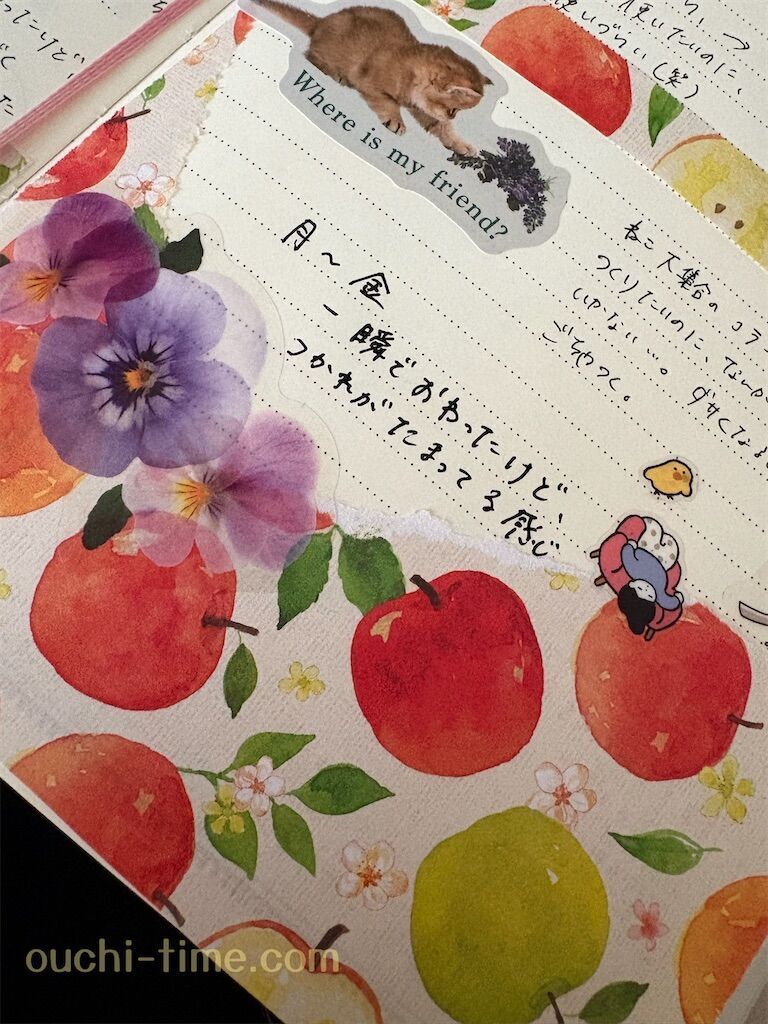 Where is my friend?
月〜金
一瞬でおわったけど、
つかれがたまってる感じ
ねこ大集合のコラ
つくりたいのに、なんか
いかない…。ダサくなる
ごちゃつく。
使いたいのに、
使いづらい(笑)
ouchi-time.com